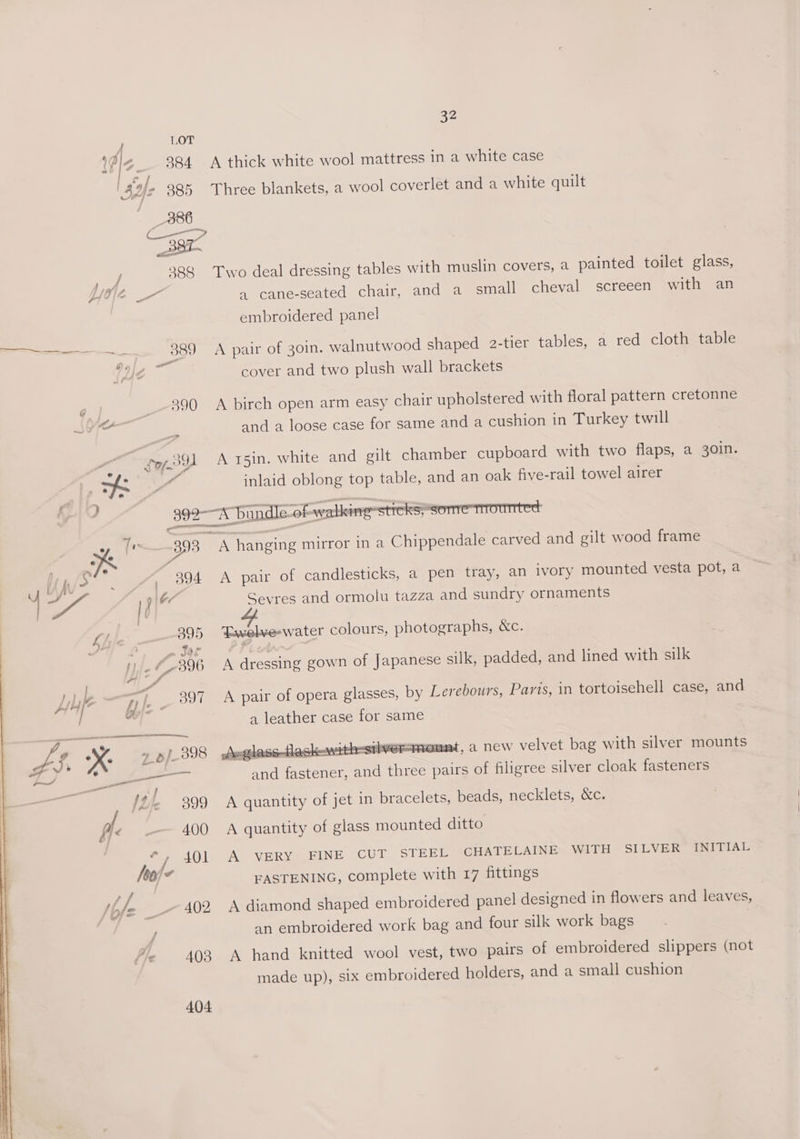 32
LOT
384 A thick white wool mattress in a white case
385 Three blankets, a wool coverlet and a white quilt
386
387
388 Two deal dressing tables with muslin covers, a painted toilet glass,
a cane-seated chair, and a small cheval screeen with an
embroidered panel
389 A pair of 30in. walnutwood shaped 2-tier tables, a red cloth table
cover and two plush wall brackets
390 A birch open arm easy chair upholstered with floral pattern cretonne
and a loose case for same and a cushion in Turkey twill
391 A 15in. white and gilt chamber cupboard with two flaps, a 30in.
inlaid oblong top table, and an oak five-rail towel airer
392 A bundle of walking sticks, some mounted
393 A hanging mirror in a Chippendale carved and gilt wood frame
394 A pair of candlesticks, a pen tray, an ivory mounted vesta pot, a
Sevres and ormolu tazza and sundry ornaments
395 Twelve water colours, photographs, &c.
396 A dressing gown of Japanese silk, padded, and lined with silk
397 A pair of opera glasses, by Lerebours, Paris, in tortoisehell case, and
a leather case for same
398 A glass flask with silver mount, a new velvet bag with silver mounts
and fastener, and three pairs of filigree silver cloak fasteners
399 A quantity of jet in bracelets, beads, necklets, &c.
400 A quantity of glass mounted ditto
401 A VERY FINE CUT STEEL CHATELAINE WITH SILVER INITIAL
FASTENING, complete with 17 fittings
402 A diamond shaped embroidered panel designed in flowers and leaves,
an embroidered work bag and four silk work bags
403 A hand knitted wool vest, two pairs of embroidered slippers (not
made up), six embroidered holders, and a small cushion
404